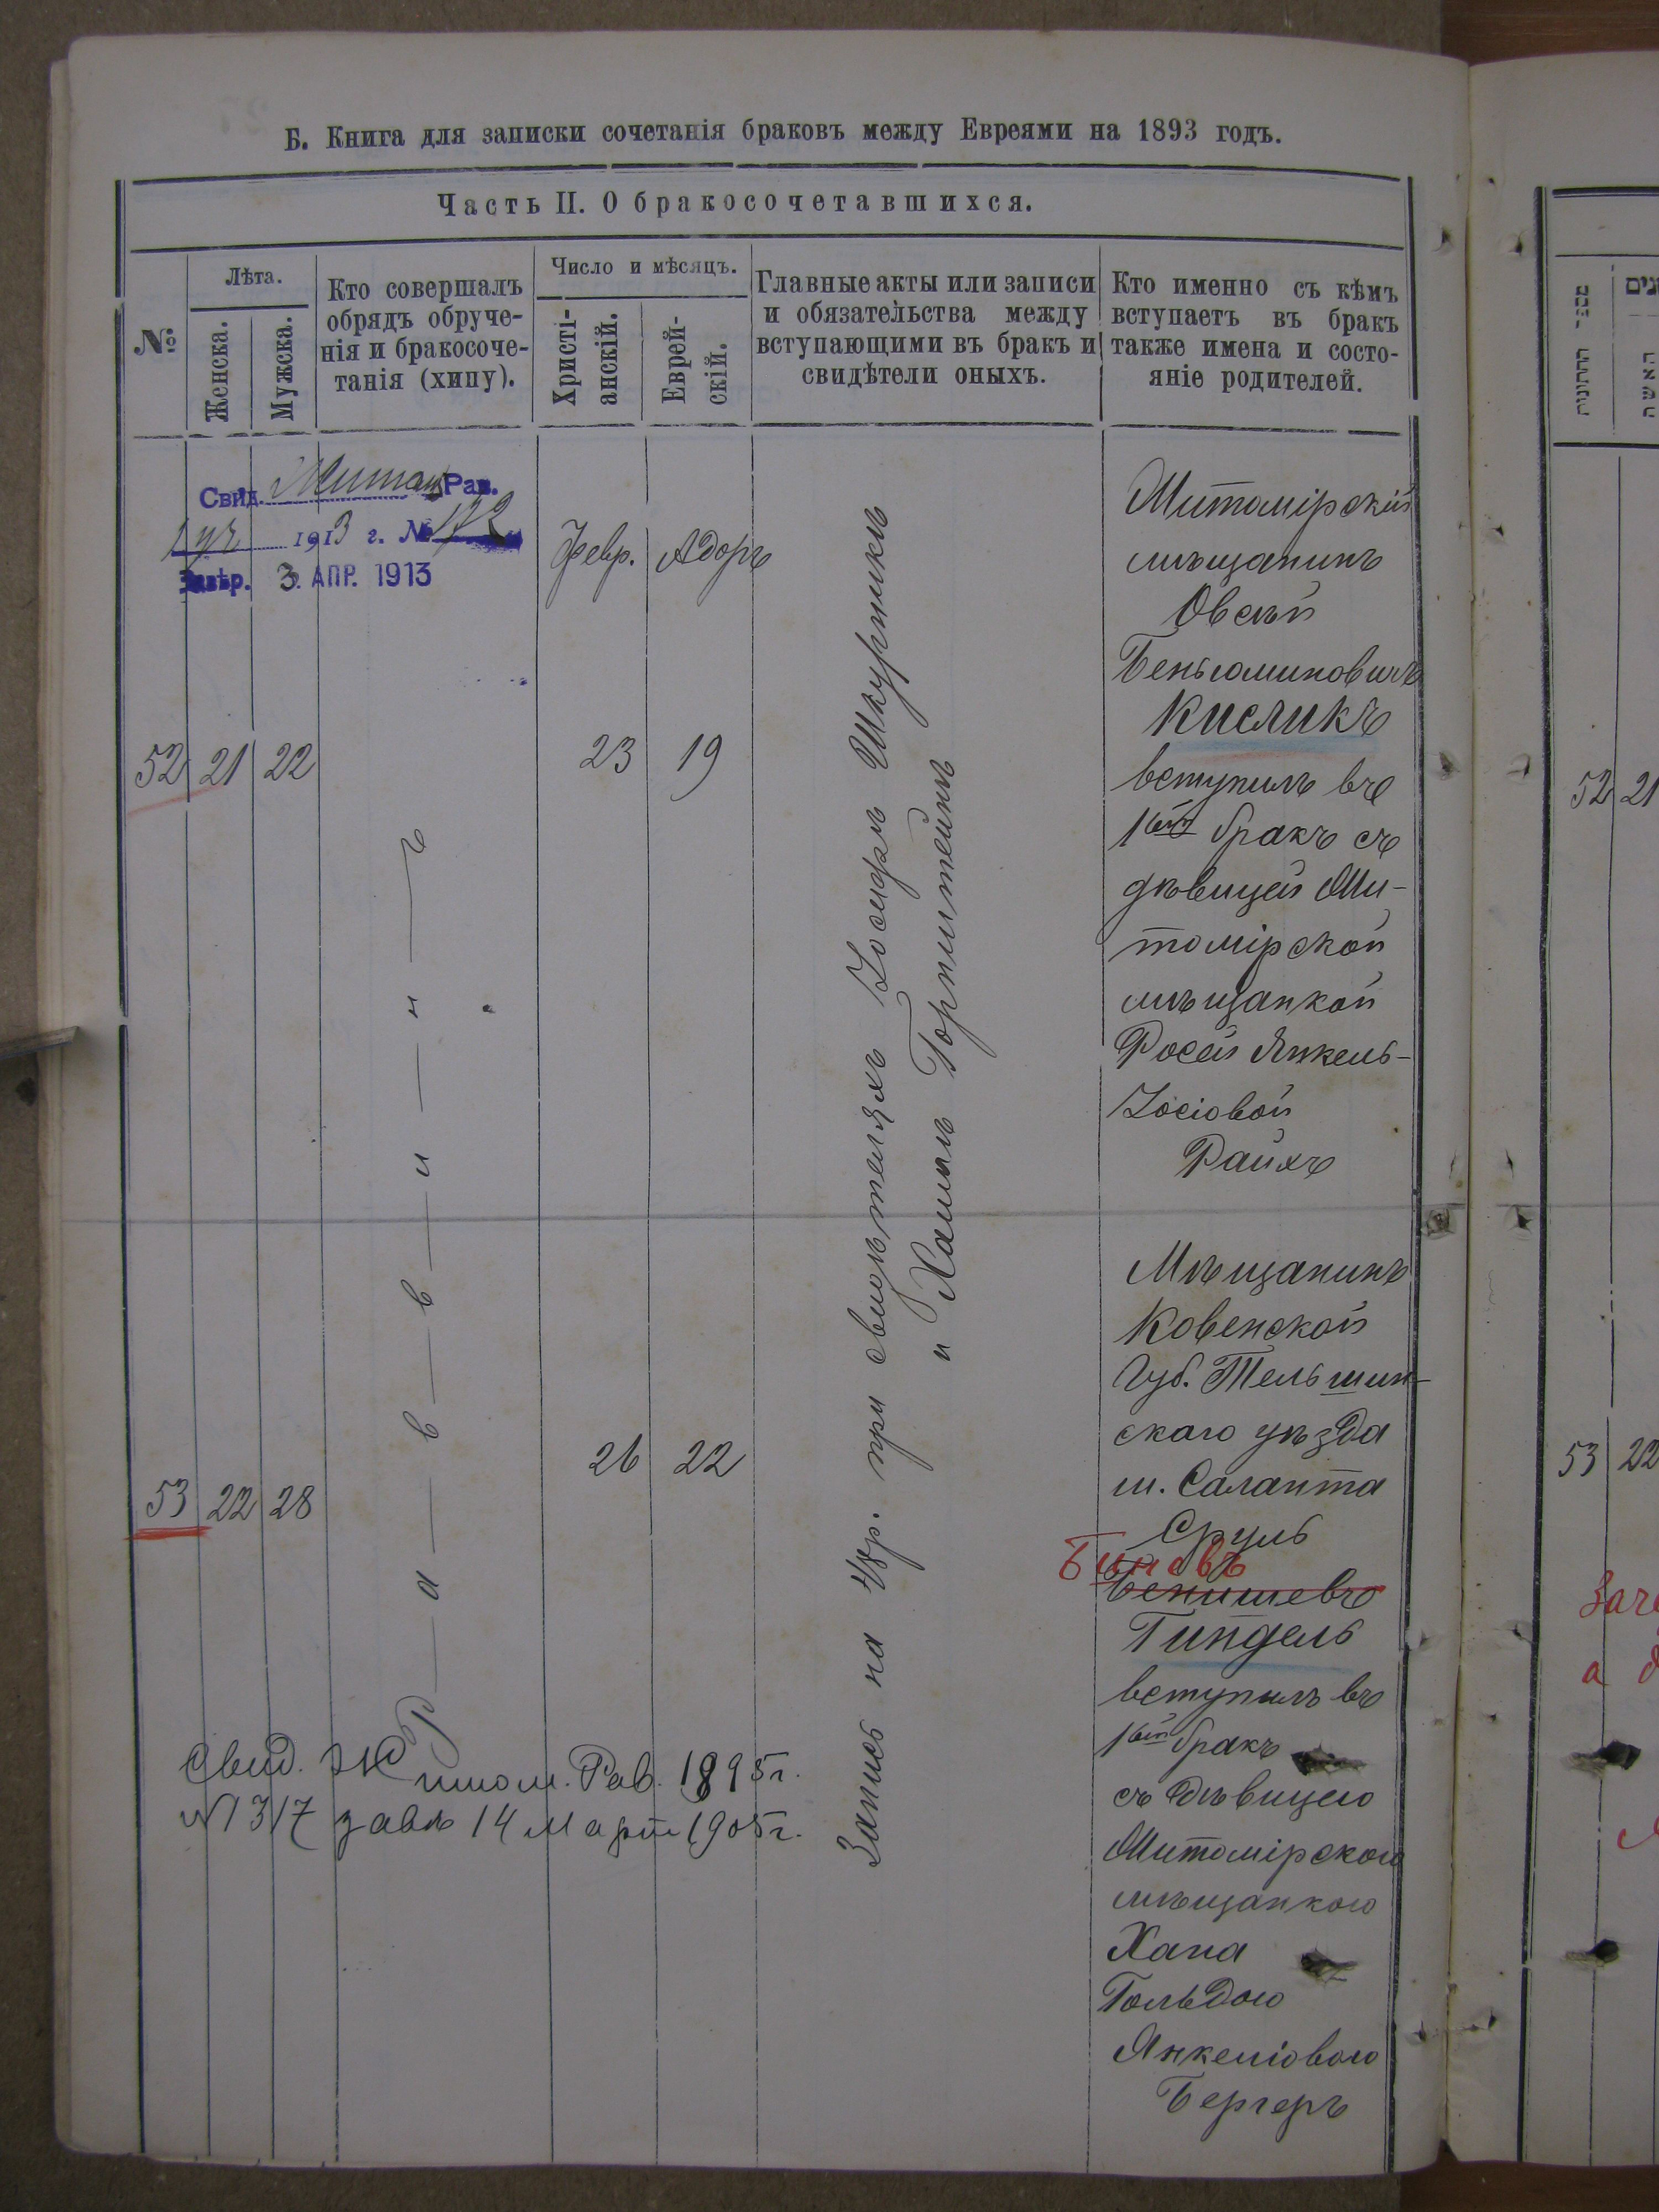 Б. Книга для записки сочетанія браковъ между Евреями на 1893 годъ.
Часть II. О бракосочетавшихся.
№
Лѣта.
Женска.
Мужска.
Кто совершалъ
обрядъ обруче-
нія и бракосоче-
танія (хипу).
Число и мѣсяцъ.
Христі-
анскій.
Еврей-
скій.
Главные акты или записи
и обязательства между
вступающими въ бракъ и
свидѣтели оныхъ.
Кто именно съ кѣмъ
вступаетъ въ бракъ
также имена и состо-
яніе родителей.
Свид. Житом. Рав.
1913 г. № 172
Завѣр. 3. АПР. 1913
Февр. Адоръ
52 21 22
23 19
Раввинъ
Запись на 48р. при свидѣтеляхъ Іосифъ Шкурникъ
и Хаимъ Горнштейнъ
Житомірскій
мѣщанинъ
Овсѣй
Беньяминовичъ
Кисликъ
вступилъ въ
1ый бракъ съ
дѣвицей Жи-
томірской
мѣщанкой
Росей Янкель-
Іосіовой
Райхъ
53 22 28
26 22
Мѣщанинъ
Ковенской
Губ. Тельшин-
скаго уѣзда
м. Саланта
Сруль
Биновъ
Бенишевъ
Гиндель
вступилъ въ
1ый бракъ
съ дѣвицею
Житомірскою
мѣщанкою
Хана
Гольдою
Янкеліовою
Бергеръ
Свид. Житом. Рав. 1895г.
№1317 завѣ 14 Март 1905г.
52 21
53 22
מספר החתונות
האשה
Заче
а д